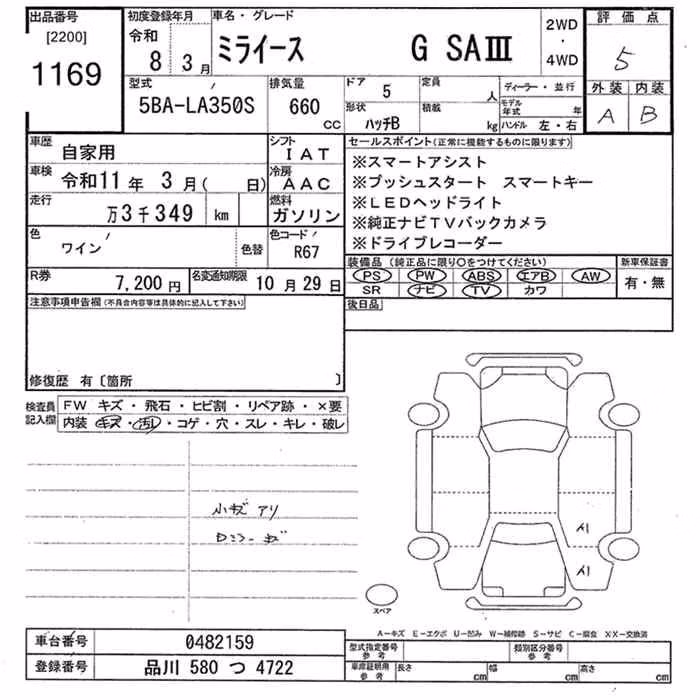 出品番号
[2200]
1169
初度登録年月
令和
8 3月
車名・グレード
ミライース G SAⅢ
2WD
・
4WD
評価点
5
外装 内装
A B
型式
5BA-LA350S
排気量
660
cc
ドア
5
定員
人
形状
ハッチB
積載
kg
ディーラー・並行
モデル年式
年
ハンドル 左・右
車歴
自家用
シフト
IAT
車検
令和11年 3月( 日)
冷房
AAC
走行
万3千349 km
燃料
ガソリン
色
ワイン
色替
色コード
R67
R券
7,200円
名変通知期限
10月29日
セールスポイント(正常に機能するものに限ります)
※スマートアシスト
※プッシュスタート スマートキー
※LEDヘッドライト
※純正ナビTVバックカメラ
※ドライブレコーダー
装備品 (純正品に限り○をつけてください)
PS PW ABS エアB AW
SR ナビ TV カワ
新車保証書
有・無
後日品
注意事項申告欄(不具合内容等は具体的に記入して下さい)
修復歴 有〔箇所 〕
検査員
記入欄
FW キズ・飛石・ヒビ割・リペア跡・×要
内装 キズ・汚レ・コゲ・穴・スレ・キレ・破レ
小キズアリ
A1
A1
スペア
A-キズ E-エクボ U-凹み W-補修跡 S-サビ C-腐食 XX-交換済
車台番号
0482159
登録番号
品川 580 つ 4722
型式指定番号
参考
類別区分番号
参考
車庫証明用
参考
長さ cm 幅 cm 高さ cm